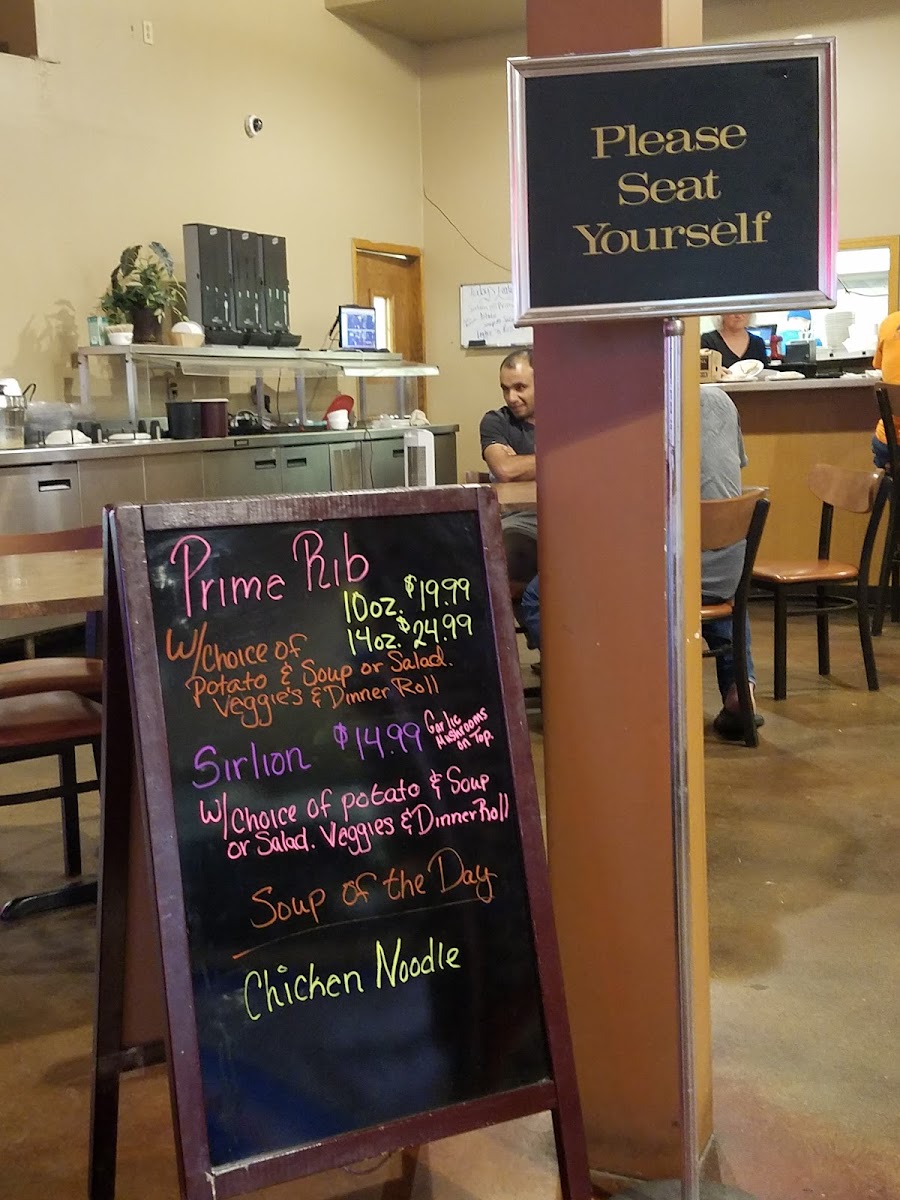 Please
Seat
Yourself
Prime Rib
10oz. $19.99
14oz. $24.99
W/Choice of
Potato & Soup or Salad.
Veggie's & Dinner Roll
Sirlion $14.99
Garlic
Mushrooms
on Top.
W/Choice of potato & Soup
or Salad. Veggies & Dinner Roll
Soup of the Day
Chicken Noodle